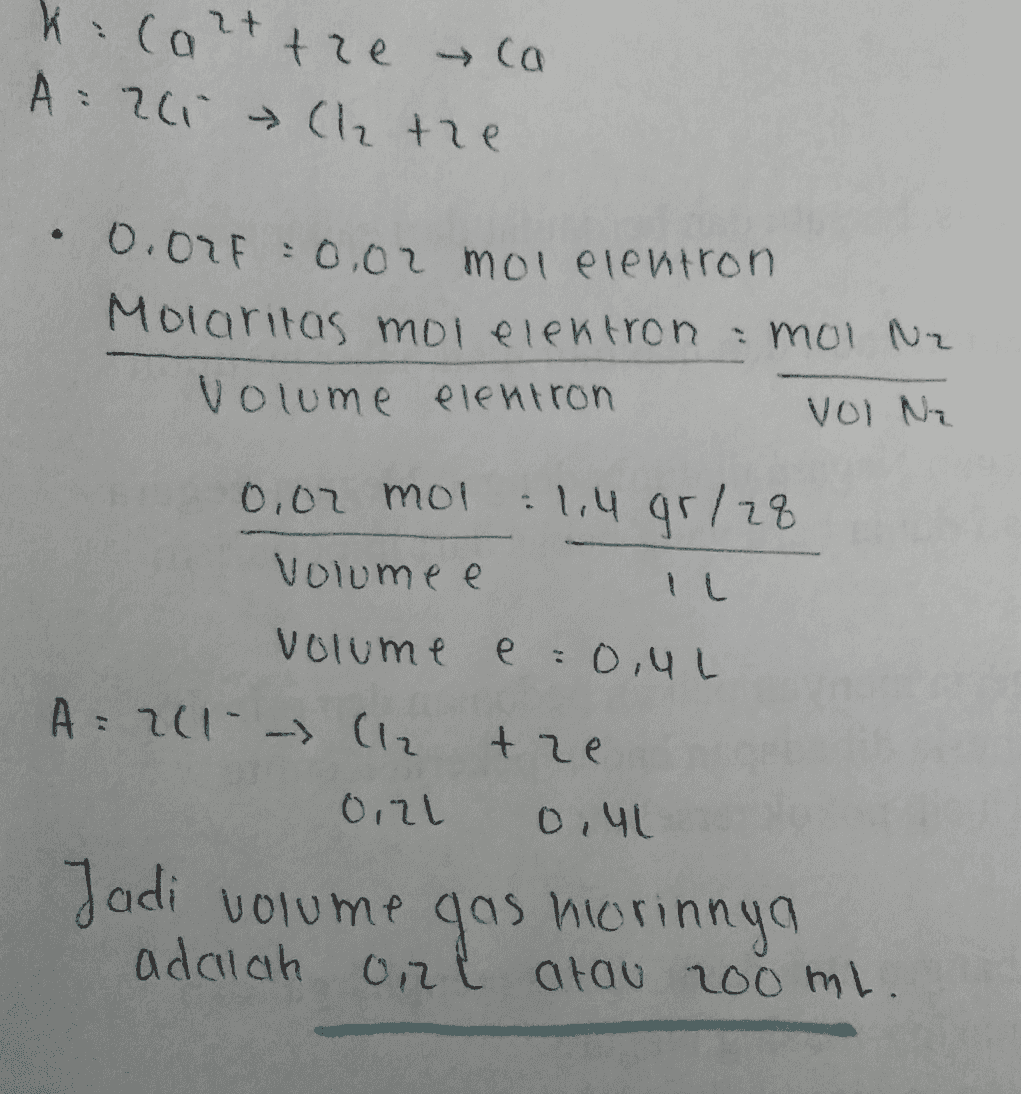 K = Ca²⁺ + 2e → Ca
A = 2Cl⁻ → Cl₂ + 2e
• 0.02F = 0,02 mol elektron
Molaritas mol elektron = mol N₂
Volume elektron vol N₂
0,02 mol = 1,4 gr/28
Volume e 1 L
Volume e = 0,4 L
A = 2Cl⁻ → Cl₂ + 2e
0,2L 0,4L
Jadi volume gas klorinnya
adalah 0,2L atau 200 mL.